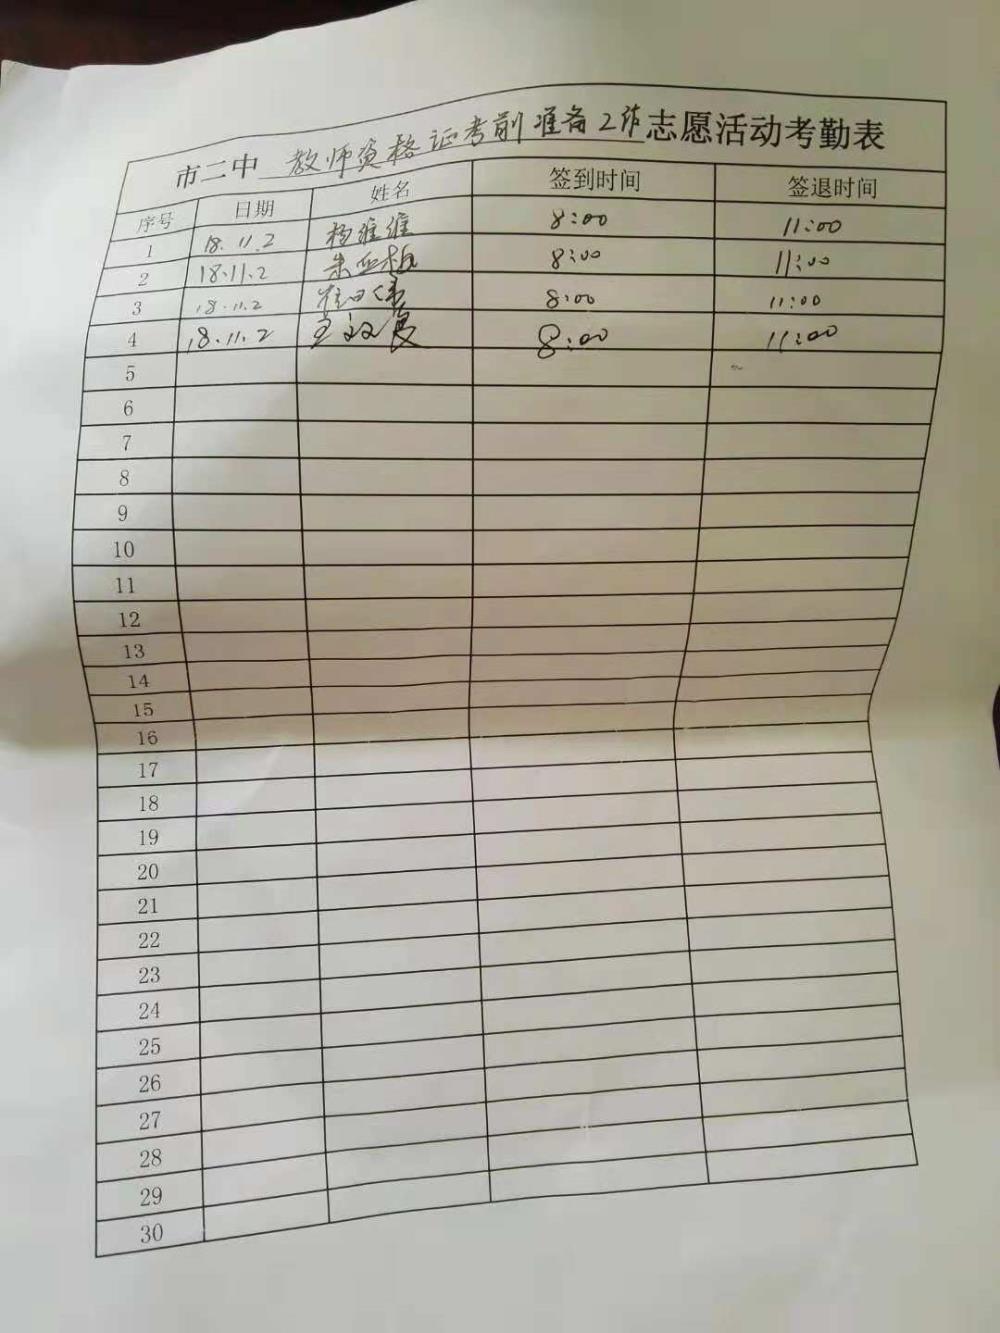 市二中 教师资格证考前准备工作 志愿活动考勤表
序号 日期 姓名 签到时间 签退时间
1 18.11.2 杨维维 8:00 11:00
2 18.11.2 8:00 11:00
3 18.11.2 8:00 11:00
4 18.11.2 8:00 11:00
5
6
7
8
9
10
11
12
13
14
15
16
17
18
19
20
21
22
23
24
25
26
27
28
29
30